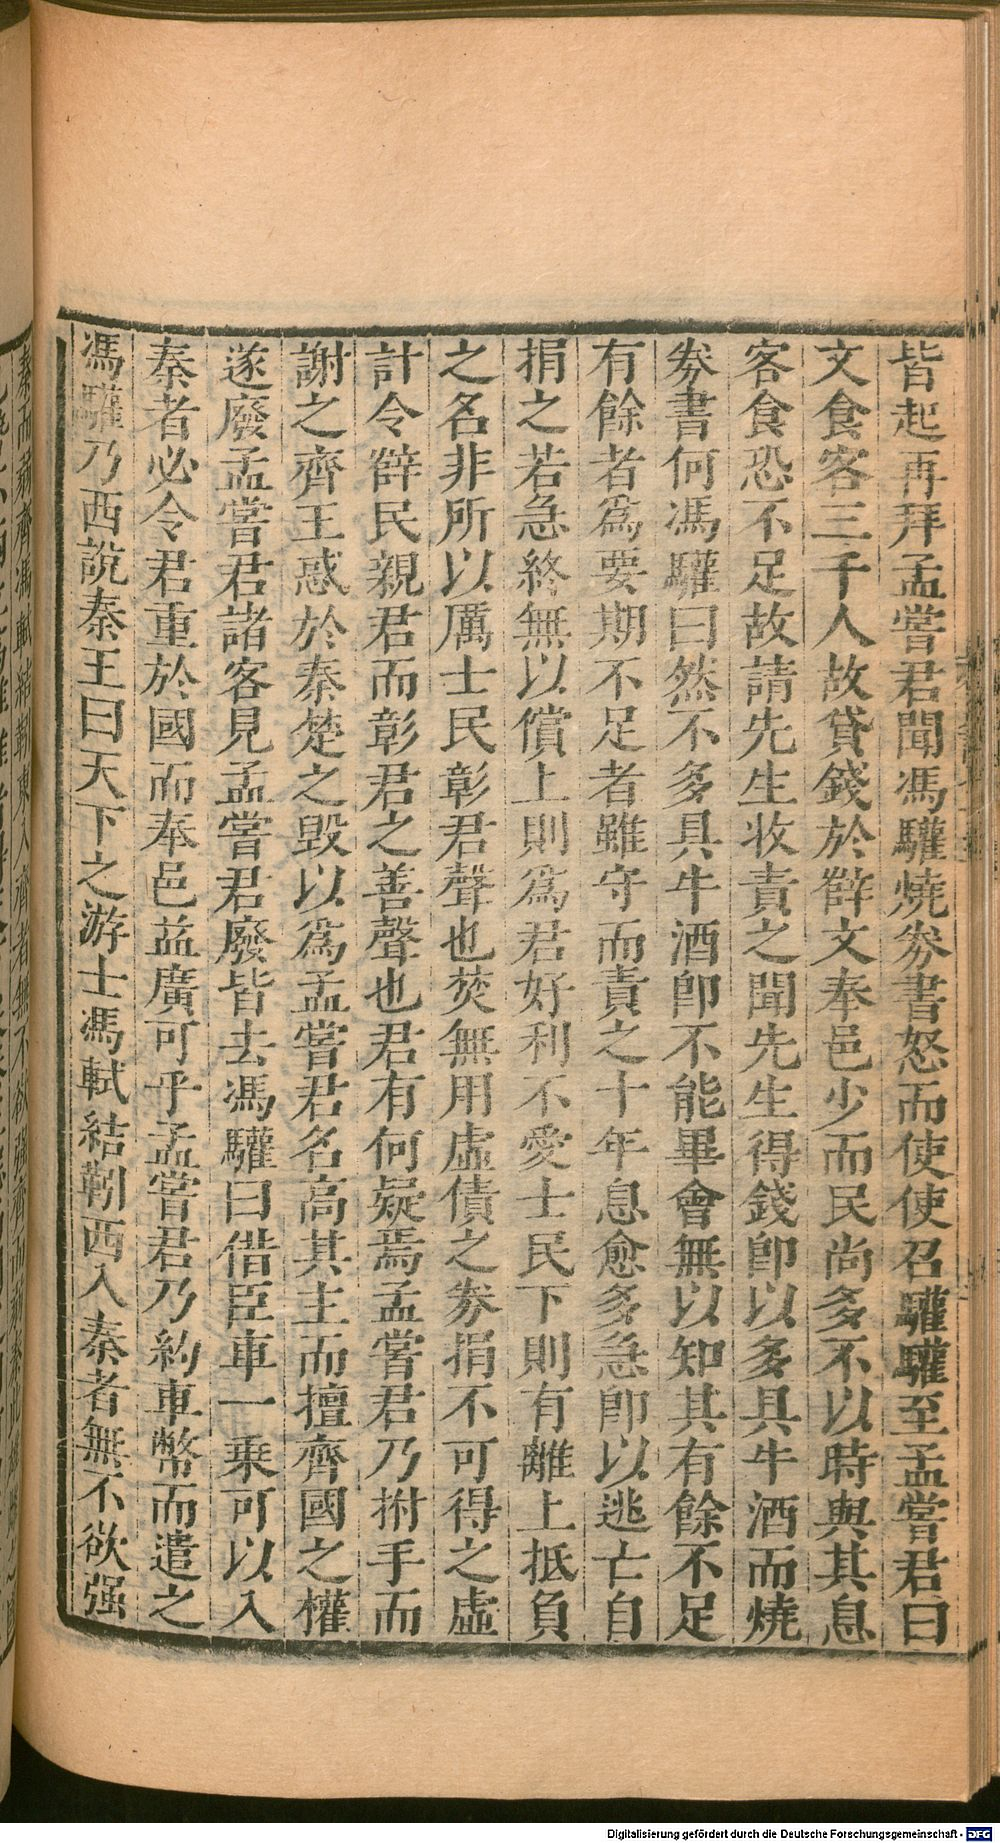 皆起再拜孟嘗君聞馮驩燒券書怒而使使召驩驩至孟嘗君曰
文食客三千人故貸錢於薛文奉邑少而民尚多不以時與其息
客食恐不足故請先生收責之聞先生得錢即以多具牛酒而燒
券書何馮驩曰然不多具牛酒即不能畢會無以知其有餘不足
有餘者爲要期不足者雖守而責之十年息愈多急即以逃亡自
捐之若急終無以償上則爲君好利不愛士民下則有離上抵負
之名非所以厲士民彰君聲也焚無用虛債之券捐不可得之虛
計令薛民親君而彰君之善聲也君有何疑焉孟嘗君乃拊手而
謝之齊王惑於秦楚之毀以爲孟嘗君名高其主而擅齊國之權
遂廢孟嘗君諸客見孟嘗君廢皆去馮驩曰借臣車一乘可以入
秦者必令君重於國而奉邑益廣可乎孟嘗君乃約車幣而遣之
馮驩乃西說秦王曰天下之游士馮軾結靷西入秦者無不欲强
Digitalisierung gefördert durch die Deutsche Forschungsgemeinschaft - DFG